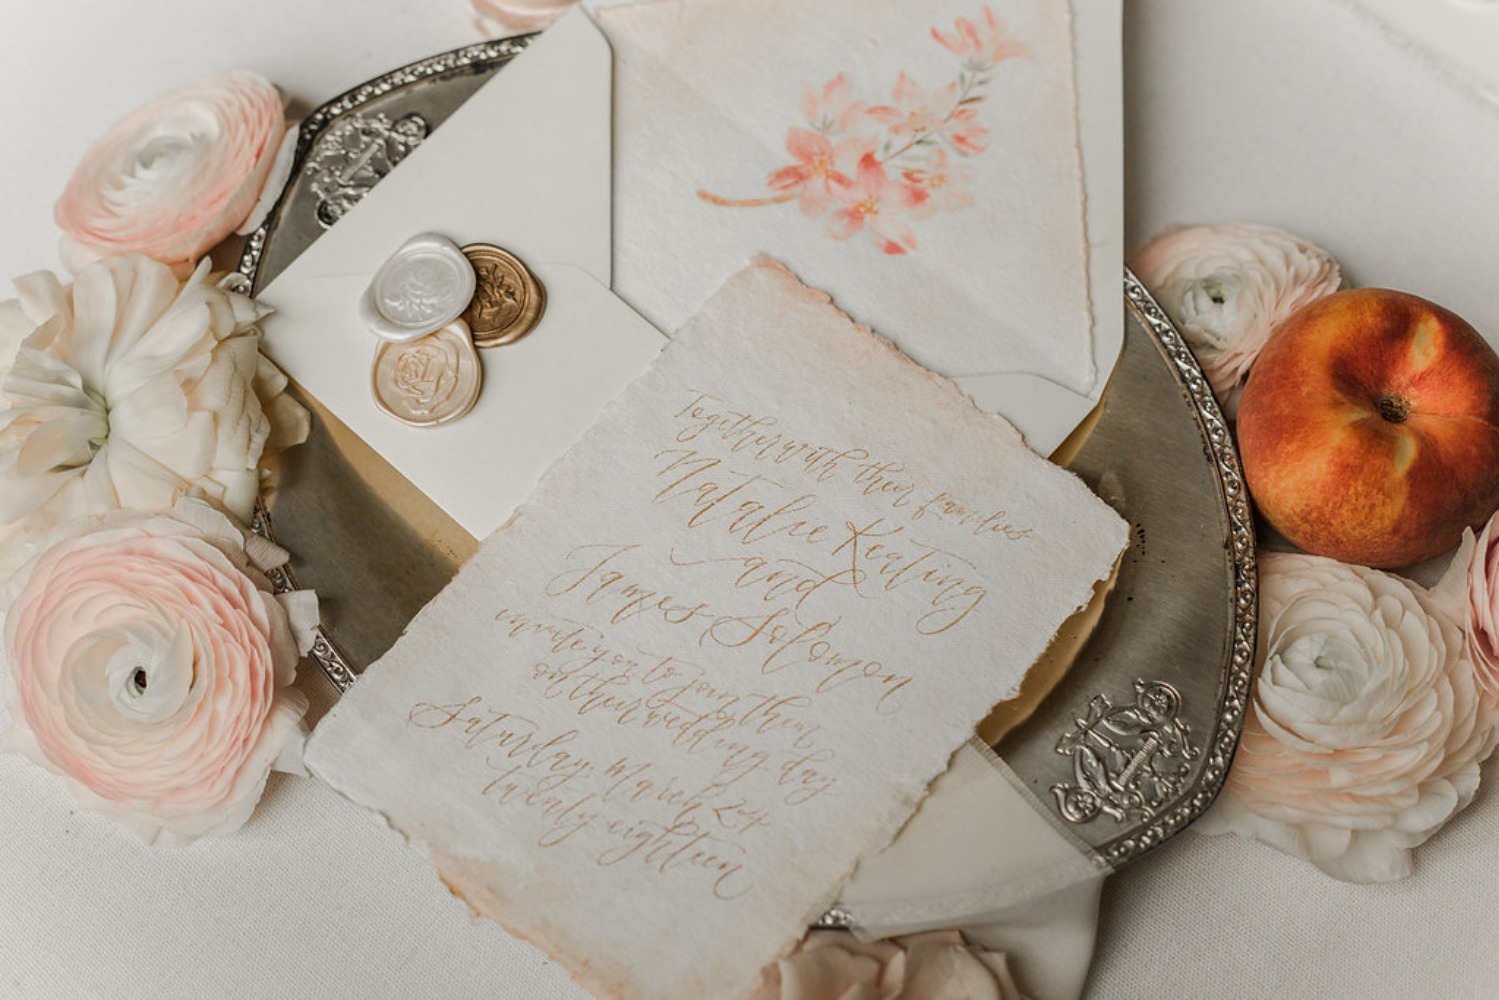 Together with their families
Natalie Keating
and
James Solomon
invite you to join them
on their wedding day
Saturday March 24
twenty eighteen